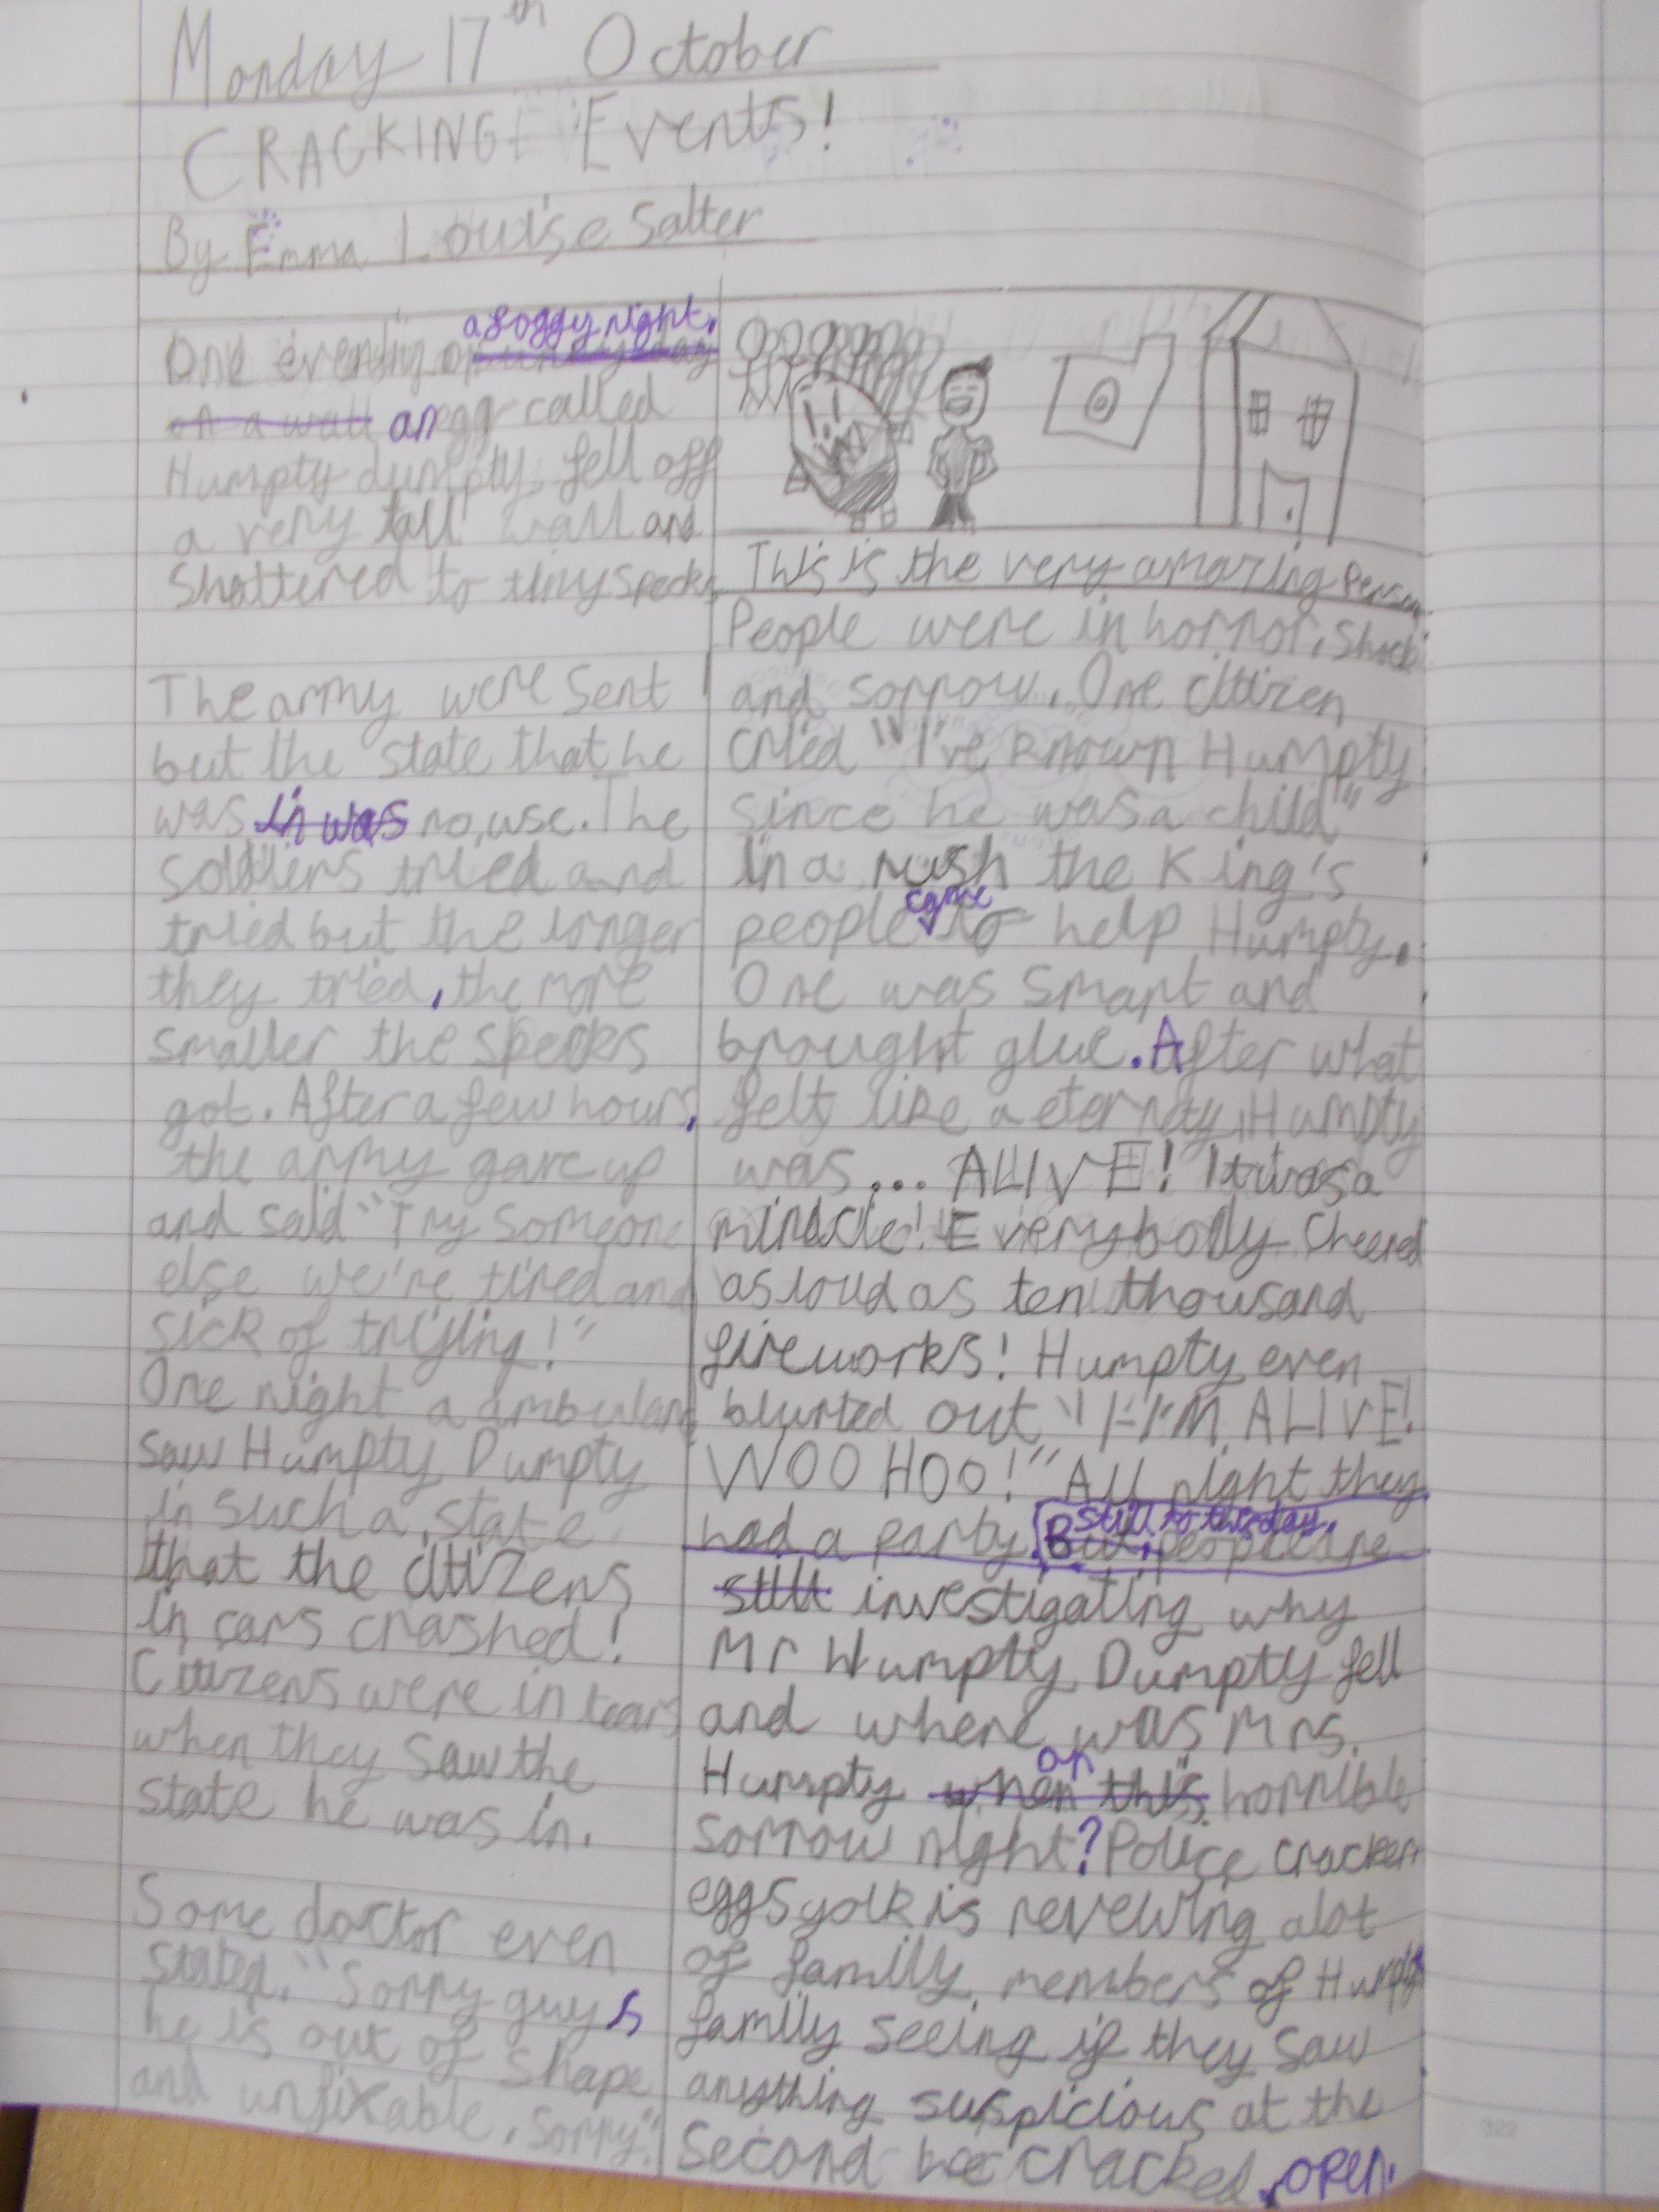 Monday 17th October
CRACKING Events!
By Emma Louise Salter
One evening on a foggy night,
on a wall an egg called
Humpty dumpty, fell off
a very tall wall and
Shattered to tiny specks
The army were sent
but the state that he
was in was no use. The
soldiers tried and
tried but the longer
they tried, the more
smaller the specks
got. After a few hours,
the army gave up
and said "Try someone
else we're tired and
sick of trijing!"
One night a ambulanc
saw Humpty Dumpty
in such a state
that the citizens
in cars crashed!
Citizens were in tears
when they saw the
state he was in.
Some doctor even
stated, "Sorry guys
he is out of shape
and unfixable, sorry".
This is the very amazing Person
People were in horror, shock
and sorrow. One citizen
cried "I've known Humpty
since he was a child"
In a rush the King's
people came to help Humpty.
One was smart and
brought glue. After what
felt like a eternity, Humpty
was... ALIVE! It was a
miracle! Everybody cheered
as loud as ten thousand
fireworks! Humpty even
blurted out "I-I'M ALIVE!
WOO HOO!" All night they
had a party. But, still to this day, people are
still investigating why
Mr Humpty Dumpty fell
and where was Mrs.
Humpty when this on horrible
sorrow night? Police cracker
eggs yolk is revewing alot
of family members of Humpty
family seeing if they saw
anything suspicious at the
Second he cracked open.
322